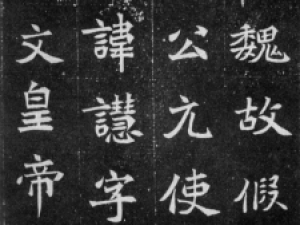 魏故假
公元使
諱譿字
文皇帝